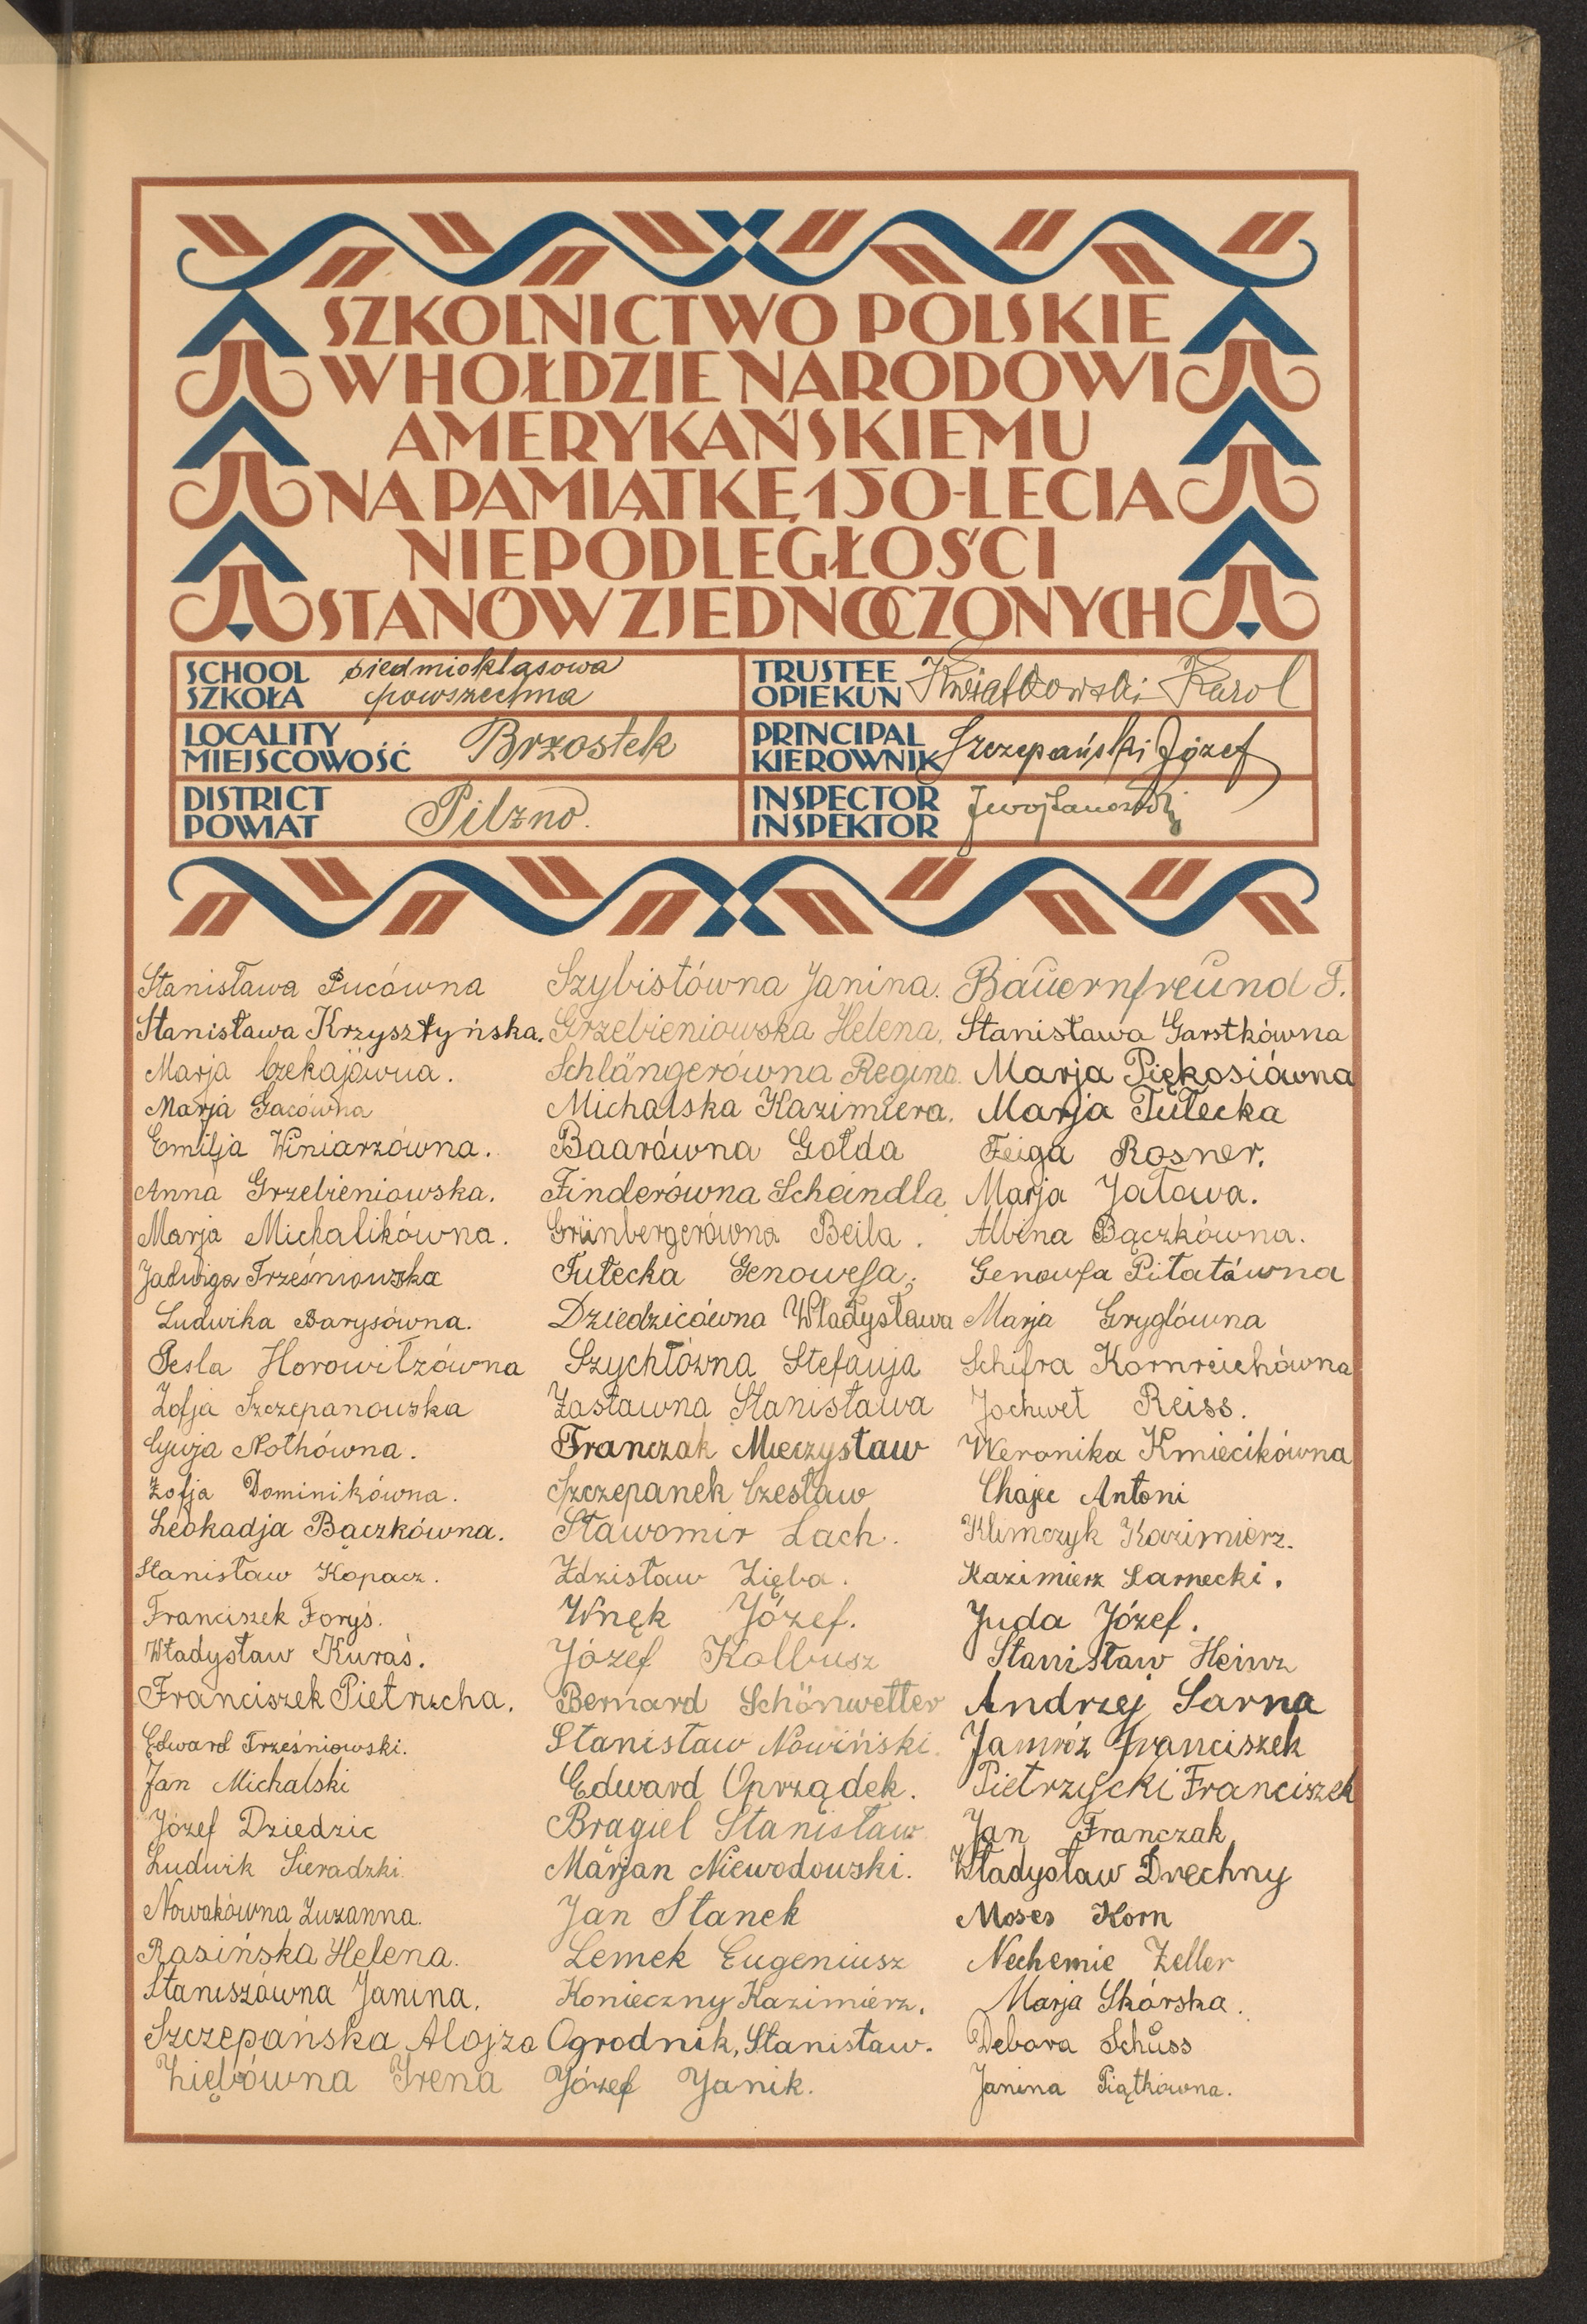 SZKOLNICTWO POLSKIE
W HOŁDZIE NARODOWI
AMERYKAŃSKIEMU
NA PAMIĄTKĘ 150-LECIA
NIEPODLEGŁOŚCI
STANÓW ZJEDNOCZONYCH
SCHOOL siedmioklasowa
SZKOŁA powszechna
TRUSTEE
OPIEKUN Kwiatkowski Karol
LOCALITY
MIEJSCOWOŚĆ Brzostek
PRINCIPAL
KIEROWNIK Szczepański Józef
DISTRICT
POWIAT Pilzno.
INSPECTOR
INSPEKTOR
Stanisława Pucówna
Stanisława Krzysztyńska.
Marja Czekajówna.
Marja Gacówna
Emilja Winiarzówna.
Anna Grzebieniowska.
Marja Michalikówna.
Jadwiga Trześniowska
Ludwika Barysówna.
Pesla Horowitzówna
Zofja Szczepanowska
Gusja Nothówna.
Zofja Dominikówna.
Leokadja Bączkówna.
Stanisław Kopacz.
Franciszek Foryś.
Władysław Kuraś.
Franciszek Pietrzcha.
Edward Trześniowski.
Jan Michalski
Józef Dziedzic
Ludwik Sieradzki
Nowakówna Zuzanna.
Rasińska Helena.
Staniszówna Janina.
Szczepańska Alojza
Ziębówna Irena
Szybistówna Janina.
Grzebieniowska Helena.
Schlängerówna Regina.
Michalska Kazimiera.
Baarówna Gołda
Finderówna Scheindla
Grünbergerówna Beila.
Tułecka Genowefa.
Dziedzicówna Władysława
Szychtówna Stefanja
Zastawna Stanisława
Franczak Mieczysław
Szczepanek Czesław
Sławomir Lach.
Zdzisław Zięba.
Wnęk Józef.
Józef Kolbusz
Bernard Schönwetter
Stanisław Nowiński.
Edward Oprządek.
Bragiel Stanisław
Marjan Niewodowski.
Jan Stanek
Lemek Eugeniusz
Konieczny Kazimierz.
Ogrodnik, Stanisław.
Józef Janik.
Bauernfreund F.
Stanisława Garstkówna
Marja Piękosiówna
Marja Tułecka
Feiga Rosner.
Marja Jałowa.
Albina Bączkówna.
Genowefa Pitatówna
Marja Gryglówna
Schifra Kornreichówna
Jochwet Reiss.
Weronika Kmiecikówna
Chajec Antoni
Klimczyk Kazimierz.
Kazimierz Sarnecki.
Juda Józef.
Stanisław Heinz
Andrzej Sarna
Jamróz Franciszek
Pietrzycki Franciszek
Jan Franczak
Władysław Drechny
Moses Korn
Nechemie Zeller
Marja Skórska.
Debora Schuss
Janina Piątkówna.